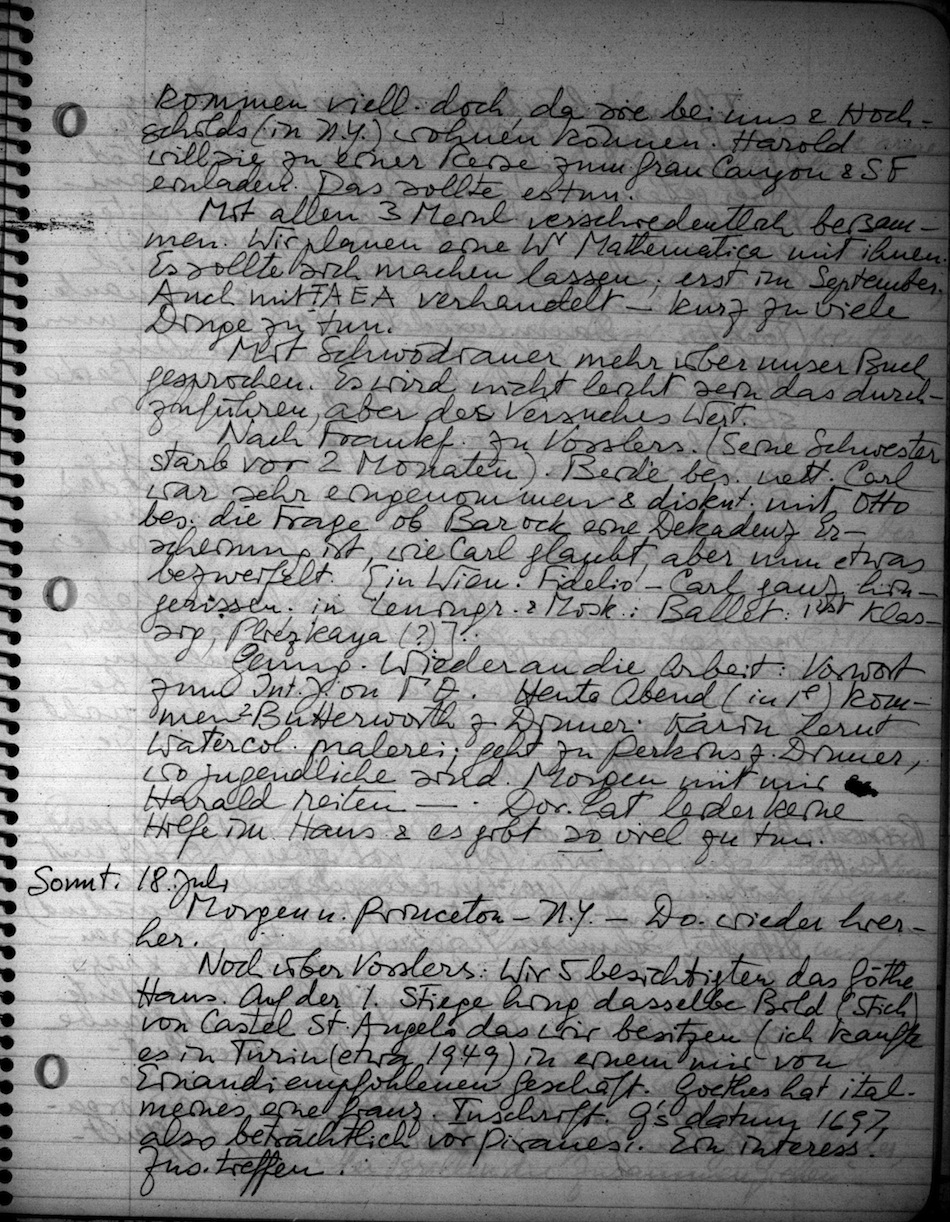 kommen viell. doch, da sie bei uns & Hoch-
schilds (in N.Y.) wohnen können. Harold
will sie zu einer Reise zum Gran Canyon & SF
einladen. Das sollte er tun.
Mit allen 3 verschiedentlich beisam-
men. Wir planen eine Mathematica mit ihnen.
Es sollte sich machen lassen; erst im September.
Auch mit IAEA verhandelt – kurz zu viele
Dinge zu tun.
Mit Schwödiauer mehr über unser Buch
gesprochen. Es wird nicht leicht sein das durch-
zuführen, aber des Versuches Wert.
Nach Frankf. zu Vosslers. (Seine Schwester
starb vor 2 Monaten). Beide bes. nett. Carl
war sehr eingenommen & diskut. mit Otto
bes. die Frage ob Barock eine Dekadenz Er-
scheinung ist, wie Carl glaubt, aber nun etwas
bezweifelt. [in Wien: Fidelio – Carl ganz hin-
gerissen. in Leningr. & Mosk.: Ballet: erst klas-
sig, (?)].
Genug. Wieder an die Arbeit: Vorwort
zum
Heute Abend (in 1h) kom-
men 2 Butterworth z. Dinner. Karin lernt
watercol. malerei; geht zu Perkins z. Dinner,
wo jugendliche sind. Morgen mit mir
Harald reiten —. Dor. hat leider keine
Hilfe im Haus & es gibt so viel zu tun.
Sonnt. 18. Juli
Morgen n. Princeton – N.Y. – Do. wieder hier-
her.
Noch über Vosslers: Wir 5 besichtigten das Göthe
Haus. Auf der 1. Stiege hing dasselbe Bild (Stich)
von Castel St. Angelo das wir besitzen (ich kaufte
es in Turin (etwa 1949) in einem mir von
Einaudi empfohlenen Geschäft. Goethes hat ital.
meines eine franz. Inschrift. G's datum 1697,
also beträchtlich vor Piranesi. Ein interess.
Zus.treffen.